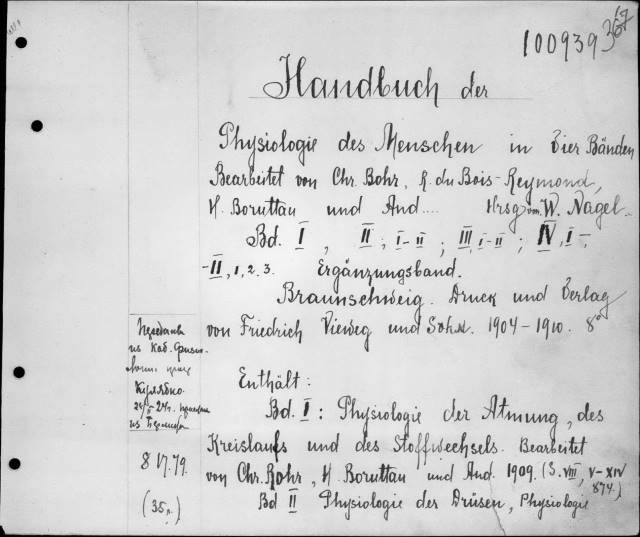 100939
367
Handbuch der
Physiologie des Menschen in Vier Bänden
Bearbeitet von Chr. Bohr, R. du Bois-Reymond,
H. Boruttau und And.... Hrsg von W. Nagel.
Bd. I, II; I-II; III, I-II; IV, I-,
-II, 1, 2, 3. Ergänzungsband.
Braunschweig. Druck und Verlag
von Friedrich Vieweg und Sohn. 1904-1910. 8°
Enthält:
Bd. I: Physiologie der Atmung, des
Kreislaufs und des Stoffwechsels. Bearbeitet
von Chr. Bohr, H. Boruttau und And. 1909. (S. VIII, V-XIV
874.)
Bd II Physiologie der Drüsen, Physiologie
из Каб. Физио-
Курлябко.
8 VI.79.
(35 )